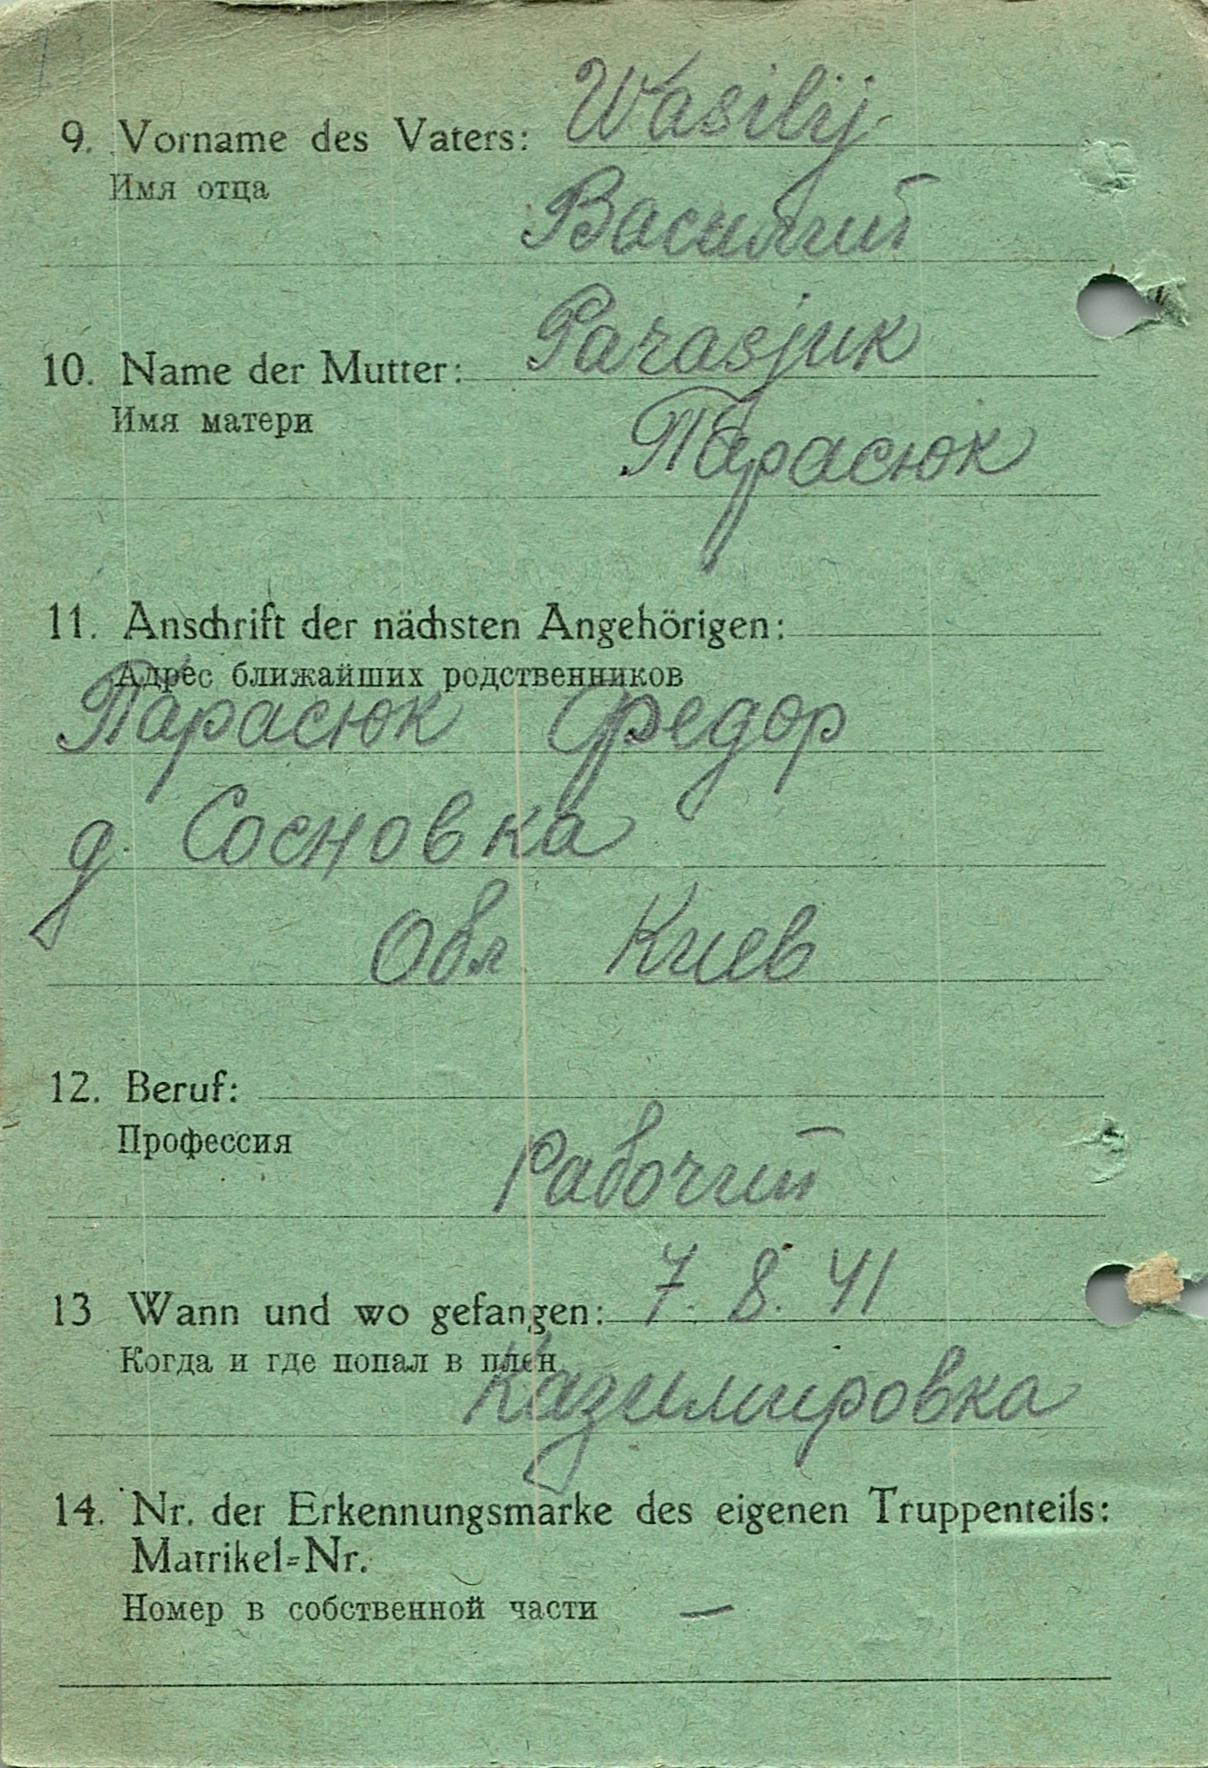 9. Vorname des Vaters: Wasilij
Имя отца
Василий
10. Name der Mutter: Parasjuk
Имя матери
Парасюк
11. Anschrift der nächsten Angehörigen:
Адрес ближайших родственников
Парасюк Федор
д. Сосновка
Обл Киев
12. Beruf:
Профессия
Рабочий
13 Wann und wo gefangen: 7. 8. 41
Когда и где попал в плен
Казимировка
14. Nr. der Erkennungsmarke des eigenen Truppenteils:
Matrikel=Nr.
Номер в собственной части —